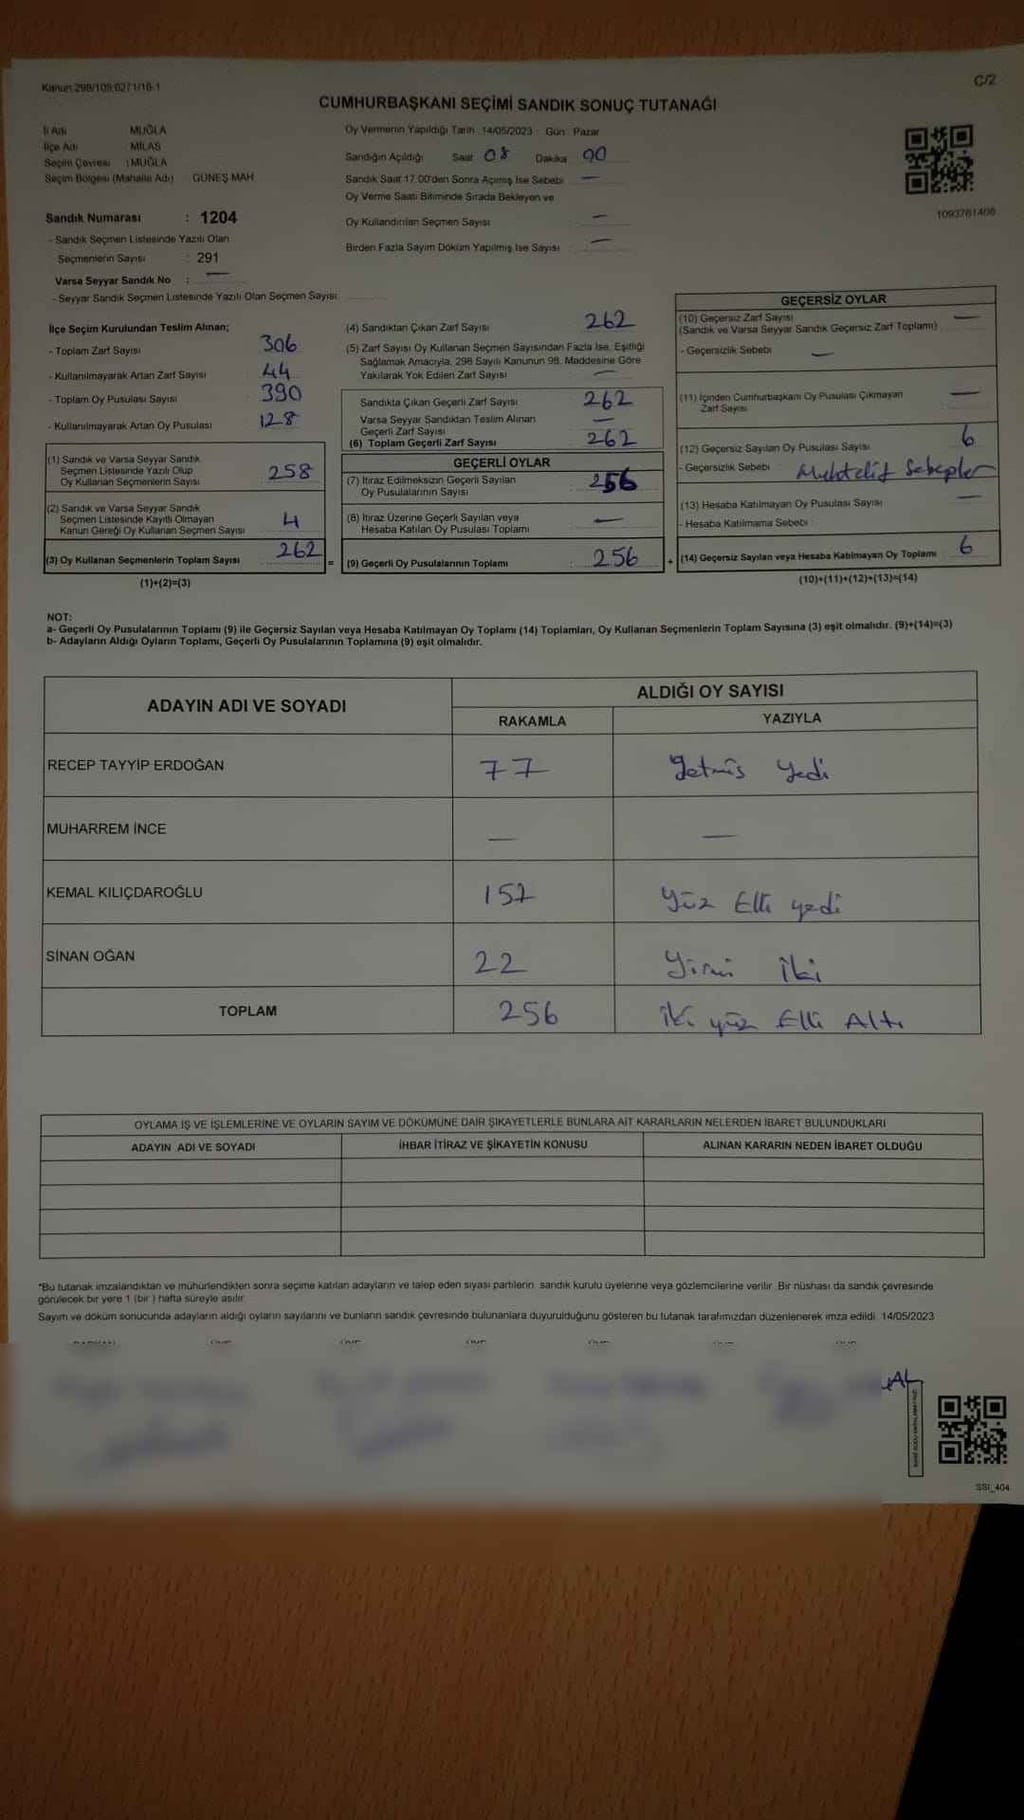 Kanun:298/109;6271/16-1
C/2
CUMHURBAŞKANI SEÇİMİ SANDIK SONUÇ TUTANAĞI
İl Adı MUĞLA
İlçe Adı MİLAS
Seçim Çevresi : MUĞLA
Seçim Bölgesi (Mahalle Adı) GÜNEŞ MAH
Sandık Numarası : 1204
- Sandık Seçmen Listesinde Yazılı Olan
Seçmenlerin Sayısı : 291
Varsa Seyyar Sandık No : —
- Seyyar Sandık Seçmen Listesinde Yazılı Olan Seçmen Sayısı
Oy Vermenin Yapıldığı Tarih 14/05/2023 Gün Pazar
Sandığın Açıldığı Saat 08 Dakika 00
Sandık Saat 17.00'den Sonra Açılmış İse Sebebi —
Oy Verme Saati Bitiminde Sırada Bekleyen ve
Oy Kullandırılan Seçmen Sayısı —
Birden Fazla Sayım Döküm Yapılmış İse Sayısı —
1093761406
İlçe Seçim Kurulundan Teslim Alınan;
- Toplam Zarf Sayısı 306
- Kullanılmayarak Artan Zarf Sayısı 44
- Toplam Oy Pusulası Sayısı 390
- Kullanılmayarak Artan Oy Pusulası 128
(1) Sandık ve Varsa Seyyar Sandık
Seçmen Listesinde Yazılı Olup
Oy Kullanan Seçmenlerin Sayısı 258
(2) Sandık ve Varsa Seyyar Sandık
Seçmen Listesinde Kayıtlı Olmayan
Kanun Gereği Oy Kullanan Seçmen Sayısı 4
(3) Oy Kullanan Seçmenlerin Toplam Sayısı 262
(1)+(2)=(3)
(4) Sandıktan Çıkan Zarf Sayısı 262
(5) Zarf Sayısı Oy Kullanan Seçmen Sayısından Fazla İse, Eşitliği
Sağlamak Amacıyla, 298 Sayılı Kanunun 98. Maddesine Göre
Yakılarak Yok Edilen Zarf Sayısı —
Sandıkta Çıkan Geçerli Zarf Sayısı 262
Varsa Seyyar Sandıktan Teslim Alınan
Geçerli Zarf Sayısı —
(6) Toplam Geçerli Zarf Sayısı 262
GEÇERLİ OYLAR
(7) İtiraz Edilmeksizin Geçerli Sayılan
Oy Pusulalarının Sayısı 256
(8) İtiraz Üzerine Geçerli Sayılan veya
Hesaba Katılan Oy Pusulası Toplamı —
= (9) Geçerli Oy Pusulalarının Toplamı : 256
GEÇERSİZ OYLAR
(10) Geçersiz Zarf Sayısı —
(Sandık ve Varsa Seyyar Sandık Geçersiz Zarf Toplamı)
- Geçersizlik Sebebi —
(11) İçinden Cumhurbaşkanı Oy Pusulası Çıkmayan
Zarf Sayısı —
(12) Geçersiz Sayılan Oy Pusulası Sayısı 6
- Geçersizlik Sebebi Muhtelif Sebepler
(13) Hesaba Katılmayan Oy Pusulası Sayısı —
- Hesaba Katılmama Sebebi
+ (14) Geçersiz Sayılan veya Hesaba Katılmayan Oy Toplamı 6
(10)+(11)+(12)+(13)=(14)
NOT:
a- Geçerli Oy Pusulalarının Toplamı (9) ile Geçersiz Sayılan veya Hesaba Katılmayan Oy Toplamı (14) Toplamları, Oy Kullanan Seçmenlerin Toplam Sayısına (3) eşit olmalıdır. (9)+(14)=(3)
b- Adayların Aldığı Oyların Toplamı, Geçerli Oy Pusulalarının Toplamına (9) eşit olmalıdır.
ADAYIN ADI VE SOYADI
ALDIĞI OY SAYISI
RAKAMLA YAZIYLA
RECEP TAYYİP ERDOĞAN 77 Yetmiş Yedi
MUHARREM İNCE — —
KEMAL KILIÇDAROĞLU 157 Yüz Elli yedi
SİNAN OĞAN 22 Yirmi İki
TOPLAM 256 İki yüz Elli Altı
OYLAMA İŞ VE İŞLEMLERİNE VE OYLARIN SAYIM VE DÖKÜMÜNE DAİR ŞİKAYETLERLE BUNLARA AİT KARARLARIN NELERDEN İBARET BULUNDUKLARI
ADAYIN ADI VE SOYADI İHBAR İTİRAZ VE ŞİKAYETİN KONUSU ALINAN KARARIN NEDEN İBARET OLDUĞU
*Bu tutanak imzalandıktan ve mühürlendikten sonra seçime katılan adayların ve talep eden siyasi partilerin sandık kurulu üyelerine veya gözlemcilerine verilir. Bir nüshası da sandık çevresinde
görülecek bir yere 1 (bir) hafta süreyle asılır.
Sayım ve döküm sonucunda adayların aldığı oyların sayılarını ve bunların sandık çevresinde bulunanlara duyurulduğunu gösteren bu tutanak tarafımızdan düzenlenerek imza edildi. 14/05/2023
SSI_404